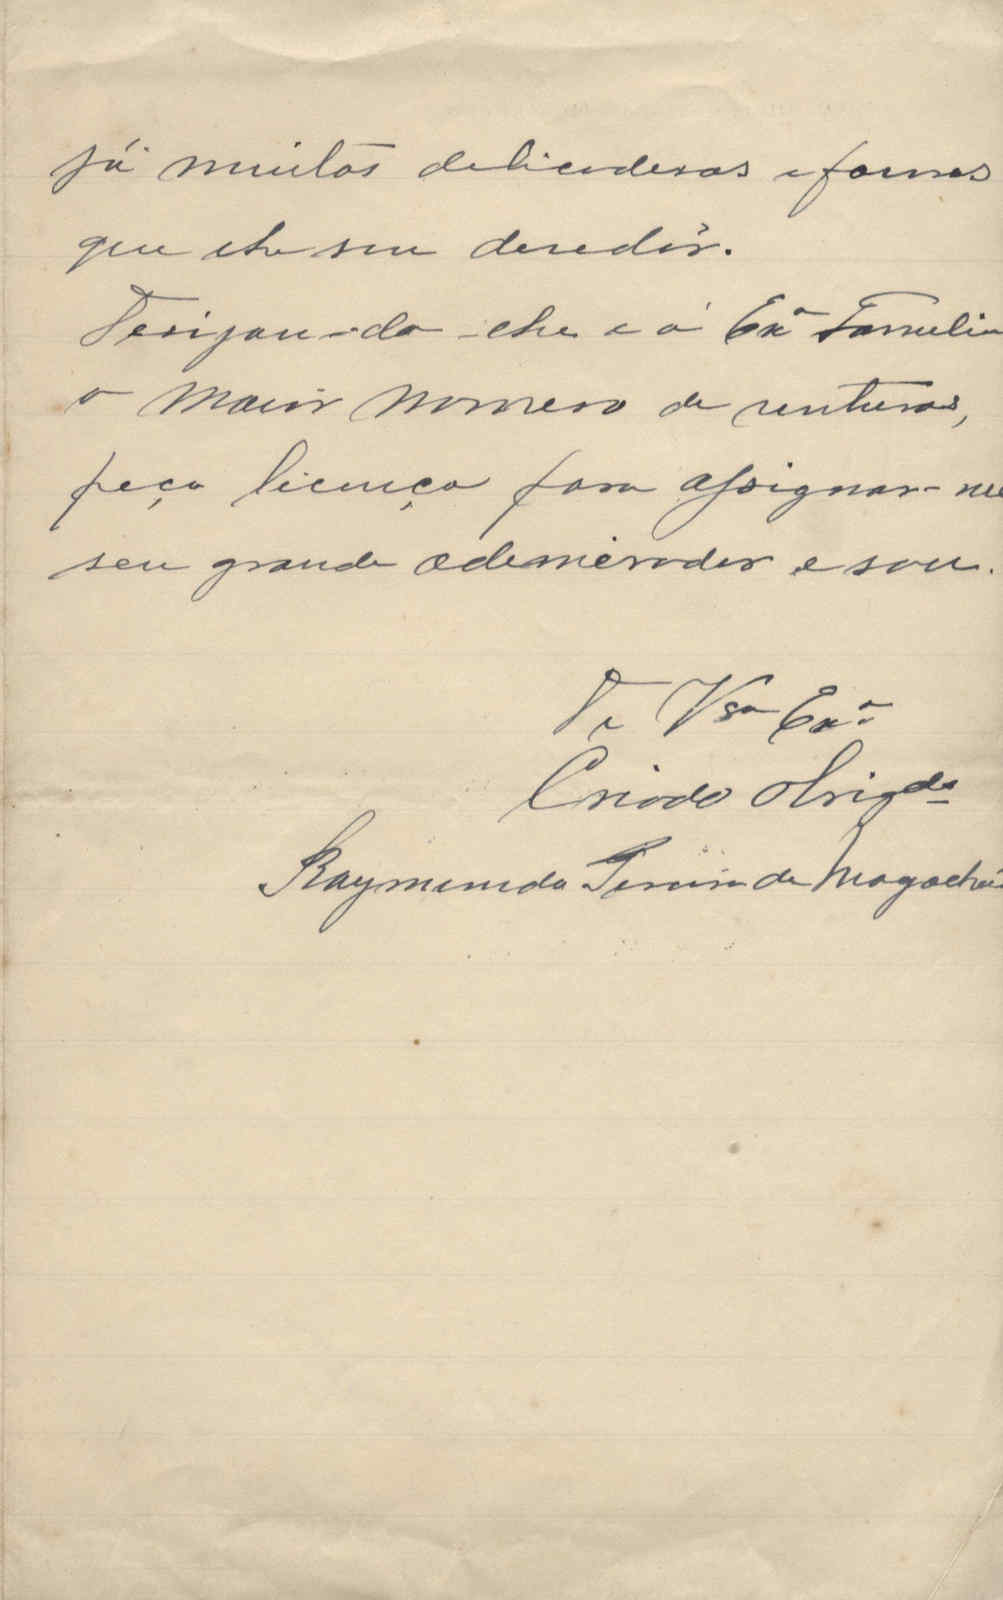 já muitas delicadesas e favores
que lhe sou devedôr.
Desijan-do-lhe e á Exª Familia
o maior nomero de venturas,
peço licença para assignar-me
seu grande ademerador e sou.
De Vsª Exª
Criado Obrigdo
Raymundo Pereira de Magalhães